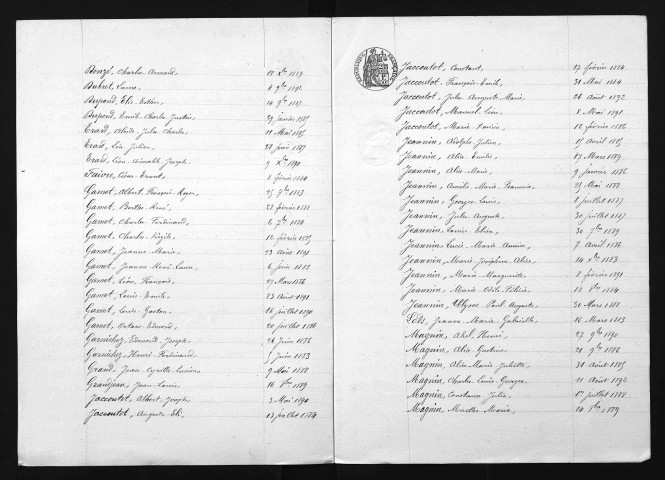 Bonzé, Charles Armand, 18 Xbre 1889
Dubret, Laure, 9bre 1892
Dupond, Elie Gaston, 14 9bre 1887
Dupond, Emile Charles Justin, 29 janvier 1885
Erard, Alcide Jules Charles, 11 Mai 1885
Erard, Léa Julien, 28 juin 1887
Erard, Léon Aimable Joseph, 9 Xbre 1890
Faivre, Léon Ernest, 8 février 1890
Gamet, Albert François Roger, 25 9bre 1883
Gamet, Berthe René, 28 février 1888
Gamet, Charles Ferdinand, 6 7bre 1884
Gamet, Charles Virgile, 12 février 1885
Gamet, Jeanne Marie, 23 août 1891
Gamet, Jeanne René Laure, 6 juin 1888
Gamet, Léon François, 27 Mars 1886
Gamet, Louis Emile, 23 Août 1891
Gamet, Louis Gaston, 16 juillet 1890
Gamet, Octave Edmond, 20 juillet 1886
Garnichez, Edmond Joseph, 26 juin 1886
Garnichez, Henri Ferdinand, 5 juin 1883
Grand, Jean Cyrille Lucien, 9 Mai 1888
Grandjean, Jean Louis, 16 8bre 1889
Jaccoutot, Albert Joseph, 3 Mai 1890
Jaccoutot, Auguste Eli, 13 juillet 1884
Jaccoutot, Constant, 17 février 1884
Jaccoutot, François Emile, 31 Mai 1884
Jaccoutot, Jules Auguste Marie, 26 Août 1892
Jaccoutot, Marcel Léon, 8 Mai 1891
Jaccoutot, Marie Louise, 12 février 1886
Jeannin, Adolphe Julien, 15 avril 1885
Jeannin, Alice Emilie, 17 Mars 1889
Jeannin, Alix Marie, 9 janvier 1886
Jeannin, Amélie Marie Francine, 25 Mai 1888
Jeannin, Georges Louis, 8 juillet 1887
Jeannin, Jules Auguste, 30 juillet 1887
Jeannin, Louise Elisa, 30 7bre 1889
Jeannin, Lucie Marie Annice, 7 avril 1886
Jeannin, Marie Joséphine Alice, 14 Xbre 1883
Jeannin, Marie Marguerite, 8 février 1891
Jeannin, Marie Odile Félicie, 18 8bre 1884
Jeannin, Ulysse Paul Auguste, 30 Mars 1888
Lods, Jeanne Marie Gabrielle, 16 Mars 1883
Magnin, Abel Henri, 27 9bre 1890
Magnin, Alix Gustave, 21 9bre 1886
Magnin, Alix Marie Juliette, 31 août 1885
Magnin, Charles Louis Georges, 11 Août 1892
Magnin, Constance Julie, 1er juillet 1888
Magnin, Marthe Maria, 14 8bre 1889